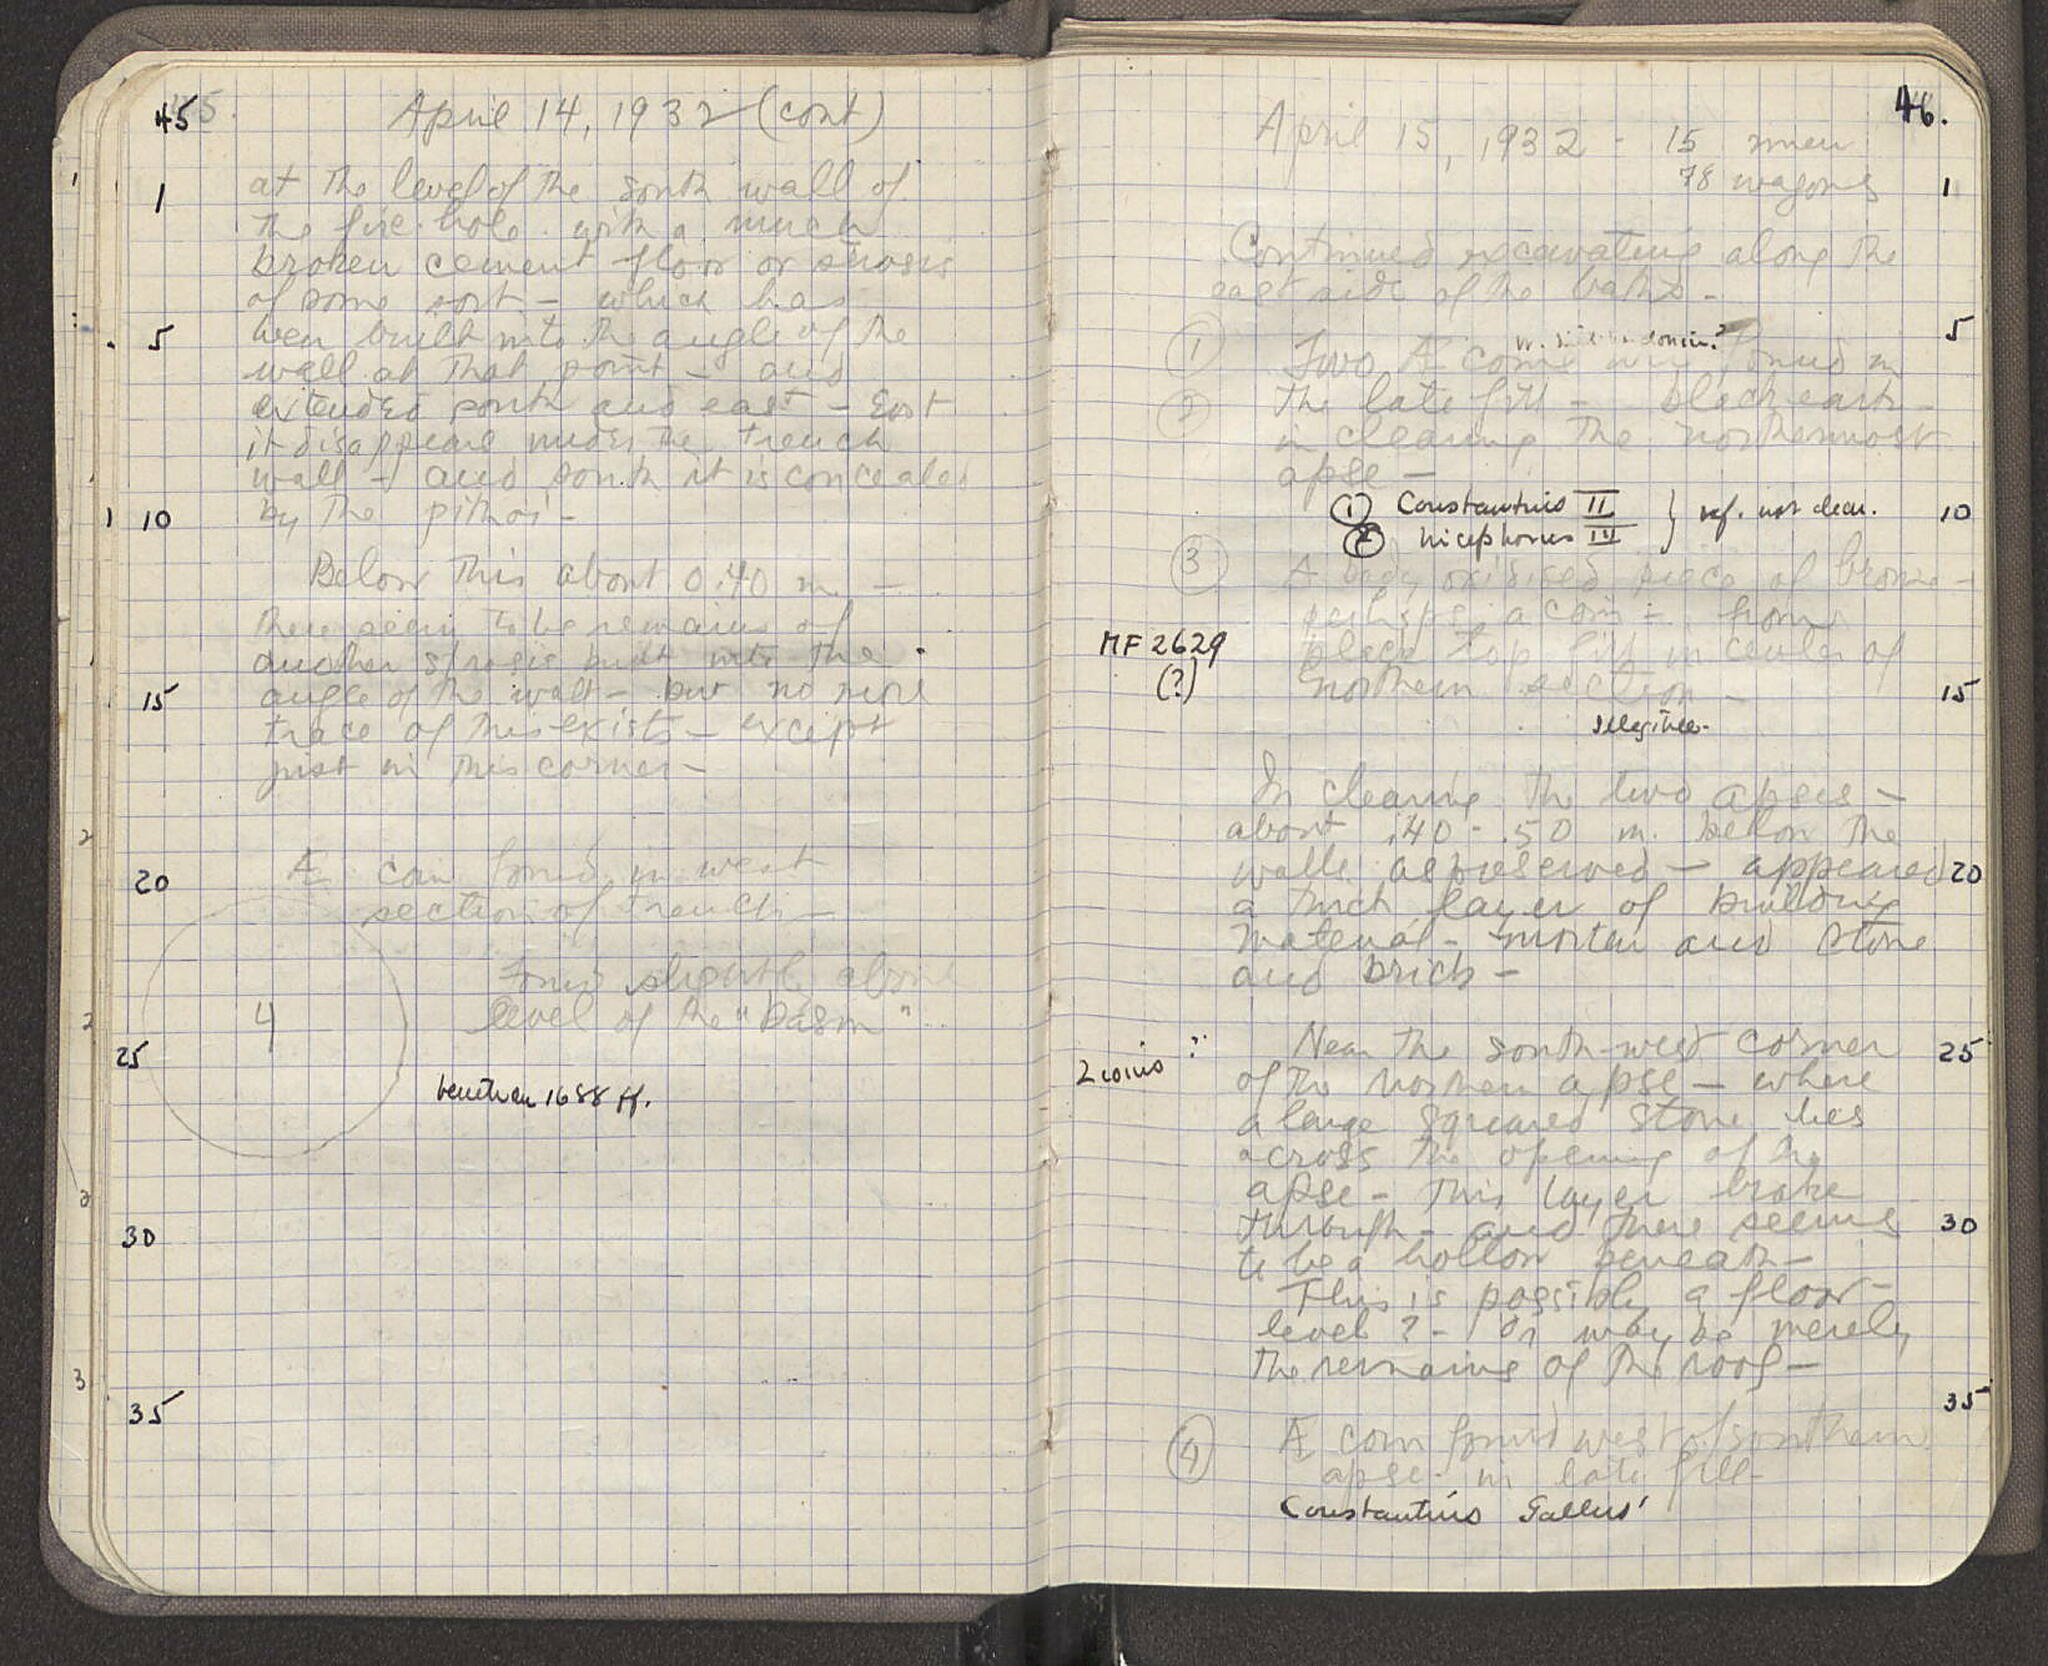 45 April 14, 1932 (cont)
1 at the level of the south wall of
the fire hole. with a much
broken cement floor or strosis
of some sort - which has
5 been built into the angle of the
wall at that point - and
extended south and east - East
it disappears under the trench
wall - and south it is concealed
10 by the pithoi -
Below this about 0.40 m. -
There seem to be remains of
another strosis built into the
15 angle of the wall - but no more
trace of this exists - except
just in this corner -
20 Æ coin found in west
section of trench -
Found slightly above
4 level of the "basin"
25
Venetian 1688 ff.
30
35
46.
April 15, 1932 - 15 men
78 wagons 1
Continued excavating along the
east side of the baths -
5
① Two Æ coins were found in
② the late fill - black earth -
in clearing the northernmost
apse -
① Constantius II } ref. not clear. 10
② Nicephorus III
③ A badly oxidised piece of bronze -
perhaps a coin - from
MF 2629 black top fill in center of
(?) northern section - 15
Illegible -
In clearing the two apses -
about .40 - .50 m. below the
walls as preserved - appeared 20
a thick layer of building
material - mortar and stone
and brick -
2 coins ? Near the south-west corner 25
of the northern apse - where
a large squared stone lies
across the opening of the
apse - this layer broke
through - and there seems 30
to be a hollow beneath -
This is possibly a floor-
level? - Or may be merely
the remains of the roof -
35
④ Æ coin found west of southern
apse - in late fill -
Constantius Gallus